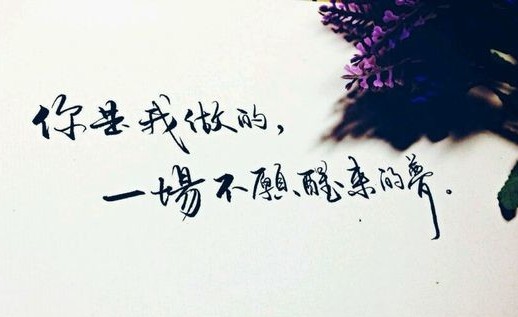 你是我做的，
一場不願醒来的夢。